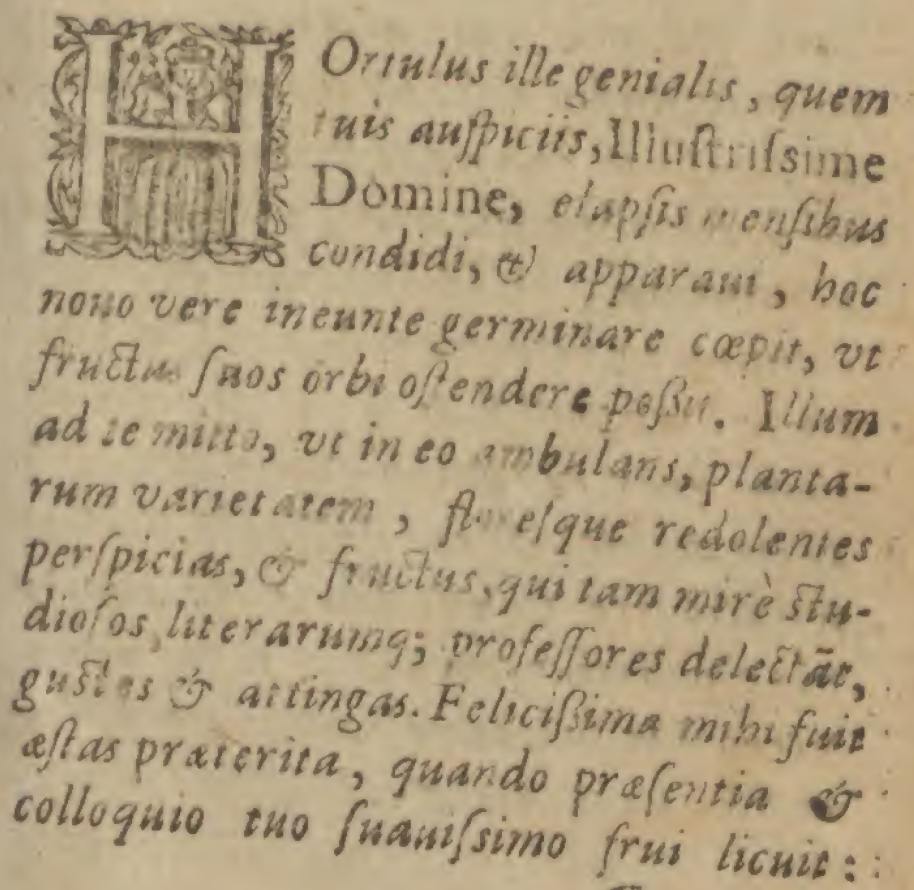 HOrtulus ille genialis, quem
tuis auſpiciis, Illuſtriſsime
Domine, elapſis menſibus
condidi, & apparaui, hoc
nouo vere ineunte germinare cœpit, vt
fructus ſuos orbi oſtendere poßit. Illum
ad te mitto, vt in eo ambulans, planta-
rum varietatem, floreſque redolentes
perſpicias, & fructus, qui tam mirè ſtu-
dioſos, literarumq; profeſſores delectāt,
guſtes & attingas. Feliciſſima mihi fuit
æſtas præterita, quando præſentia &
colloquio tuo ſuauiſsimo frui licuit: